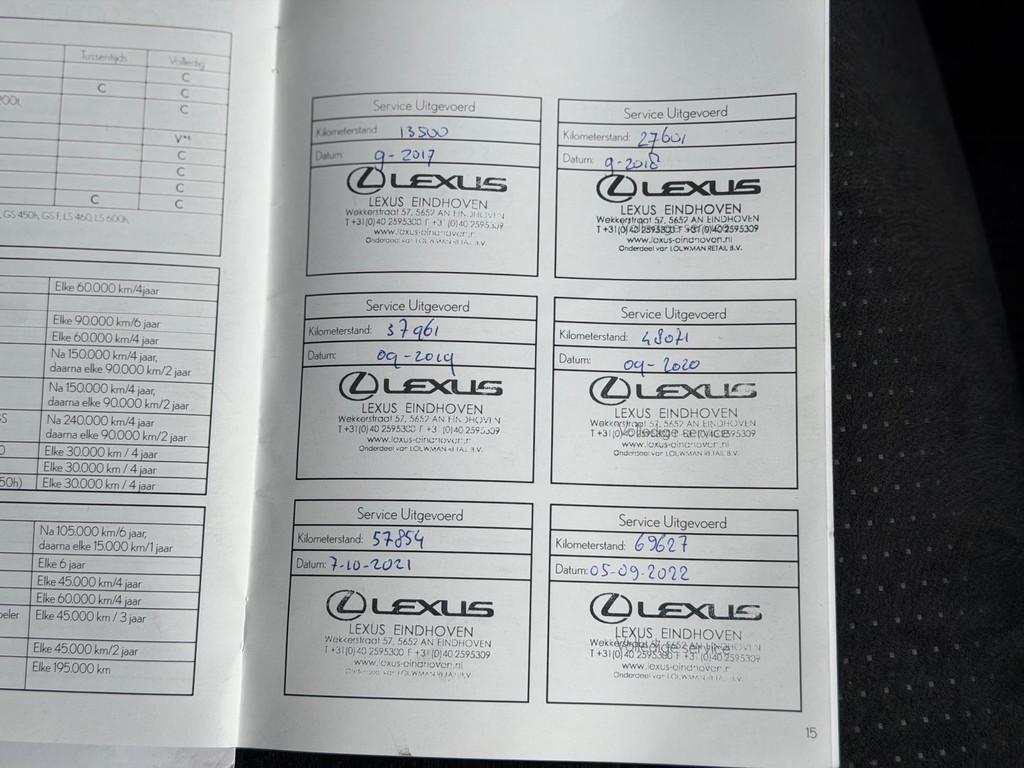 Tussentijds Volledig
C
C C
C
V*4
C
C
C
C C
, GS 450h, GS F, LS 460, LS 600h,
Elke 60.000 km/4jaar
Elke 90.000 km/6 jaar
Elke 60.000 km/4 jaar
Na 150.000 km/4 jaar,
daarna elke 90.000 km/2 jaar
Na 150.000 km/4 jaar,
daarna elke 90.000 km/2 jaar
Na 240.000 km/4 jaar
daarna elke 90.000 km/2 jaar
Elke 30.000 km / 4 jaar
Elke 30.000 km / 4 jaar
50h) Elke 30.000 km / 4 jaar
Na 105.000 km/6 jaar,
daarna elke 15.000 km/1 jaar
Elke 6 jaar
Elke 45.000 km/4 jaar
Elke 60.000 km/4 jaar
peler Elke 45.000 km / 3 jaar
Elke 45.000 km/2 jaar
Elke 195.000 km
Service Uitgevoerd
Kilometerstand: 13500
Datum: 9-2017
LEXUS
LEXUS EINDHOVEN
Wekkerstraat 57, 5652 AN EINDHOVEN
T +31(0)40 2595300 F +31 (0)40 2595309
www.lexus-eindhoven.nl
Onderdeel van LOUWMAN RETAIL B.V.
Service Uitgevoerd
Kilometerstand: 27601
Datum: 9-2018
LEXUS
LEXUS EINDHOVEN
Wekkerstraat 57, 5652 AN EINDHOVEN
T +31(0)40 2595300 F +31 (0)40 2595309
www.lexus-eindhoven.nl
Onderdeel van LOUWMAN RETAIL B.V.
Service Uitgevoerd
Kilometerstand: 37961
Datum: 09-2019
LEXUS
LEXUS EINDHOVEN
Wekkerstraat 57, 5652 AN EINDHOVEN
T +31(0)40 2595300 F +31 (0)40 2595309
www.lexus-eindhoven.nl
Onderdeel van LOUWMAN RETAIL B.V.
Service Uitgevoerd
Kilometerstand: 48071
Datum: 09-2020
LEXUS
LEXUS EINDHOVEN
Wekkerstraat 57, 5652 AN EINDHOVEN
Volledige service
T +31(0)40 2595300 F +31 (0)40 2595309
www.lexus-eindhoven.nl
Onderdeel van LOUWMAN RETAIL B.V.
Service Uitgevoerd
Kilometerstand: 57854
Datum: 7-10-2021
LEXUS
LEXUS EINDHOVEN
Wekkerstraat 57, 5652 AN EINDHOVEN
T +31(0)40 2595300 F +31 (0)40 2595309
www.lexus-eindhoven.nl
Onderdeel van LOUWMAN RETAIL B.V.
Service Uitgevoerd
Kilometerstand: 69627
Datum: 05-09-2022
LEXUS
LEXUS EINDHOVEN
Wekkerstraat 57, 5652 AN EINDHOVEN
Volledige service
T +31(0)40 2595300 F +31 (0)40 2595309
www.lexus-eindhoven.nl
Onderdeel van LOUWMAN RETAIL B.V.
15